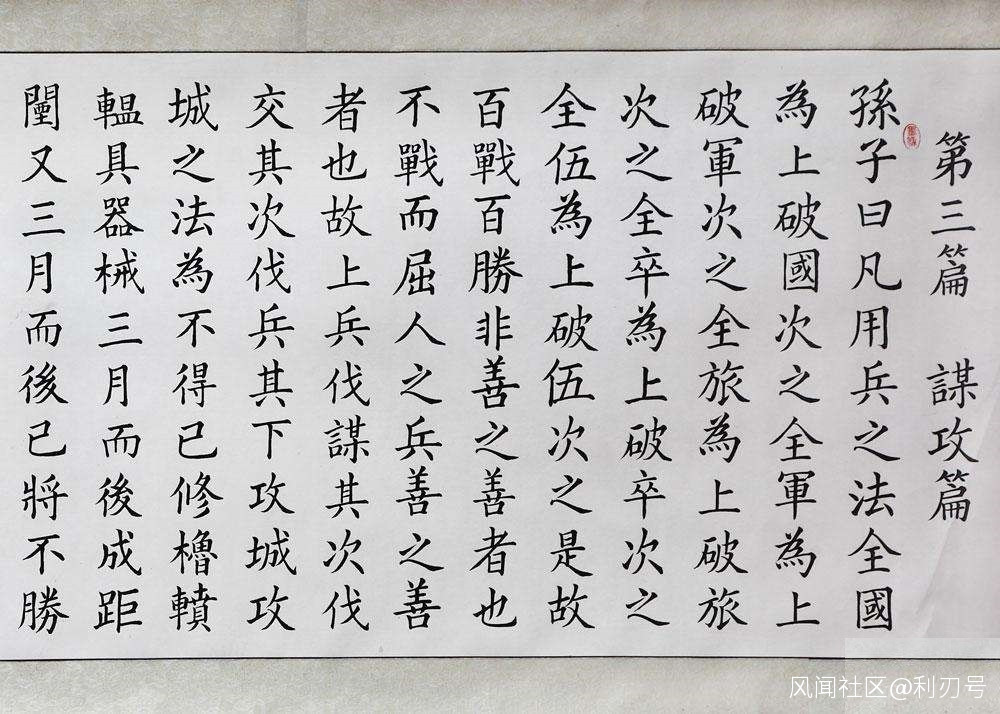 第三篇 謀攻篇
孫子曰凡用兵之法全國
為上破國次之全軍為上
破軍次之全旅為上破旅
次之全卒為上破卒次之
全伍為上破伍次之是故
百戰百勝非善之善者也
不戰而屈人之兵善之善
者也故上兵伐謀其次伐
交其次伐兵其下攻城攻
城之法為不得已修櫓轒
轀具器械三月而後成距
闉又三月而後已將不勝
风闻社区@利刃号